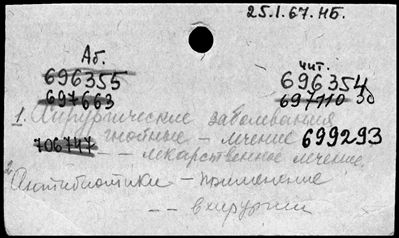 25.I.67. НБ.
Аб. чит.
696355 696354
697663 697710 Зо
1. Хирургические заболевания
гнойные - лечение 699293
706747 - лекарственное лечение.
2. Антибиотики - применение
-- в хирургии